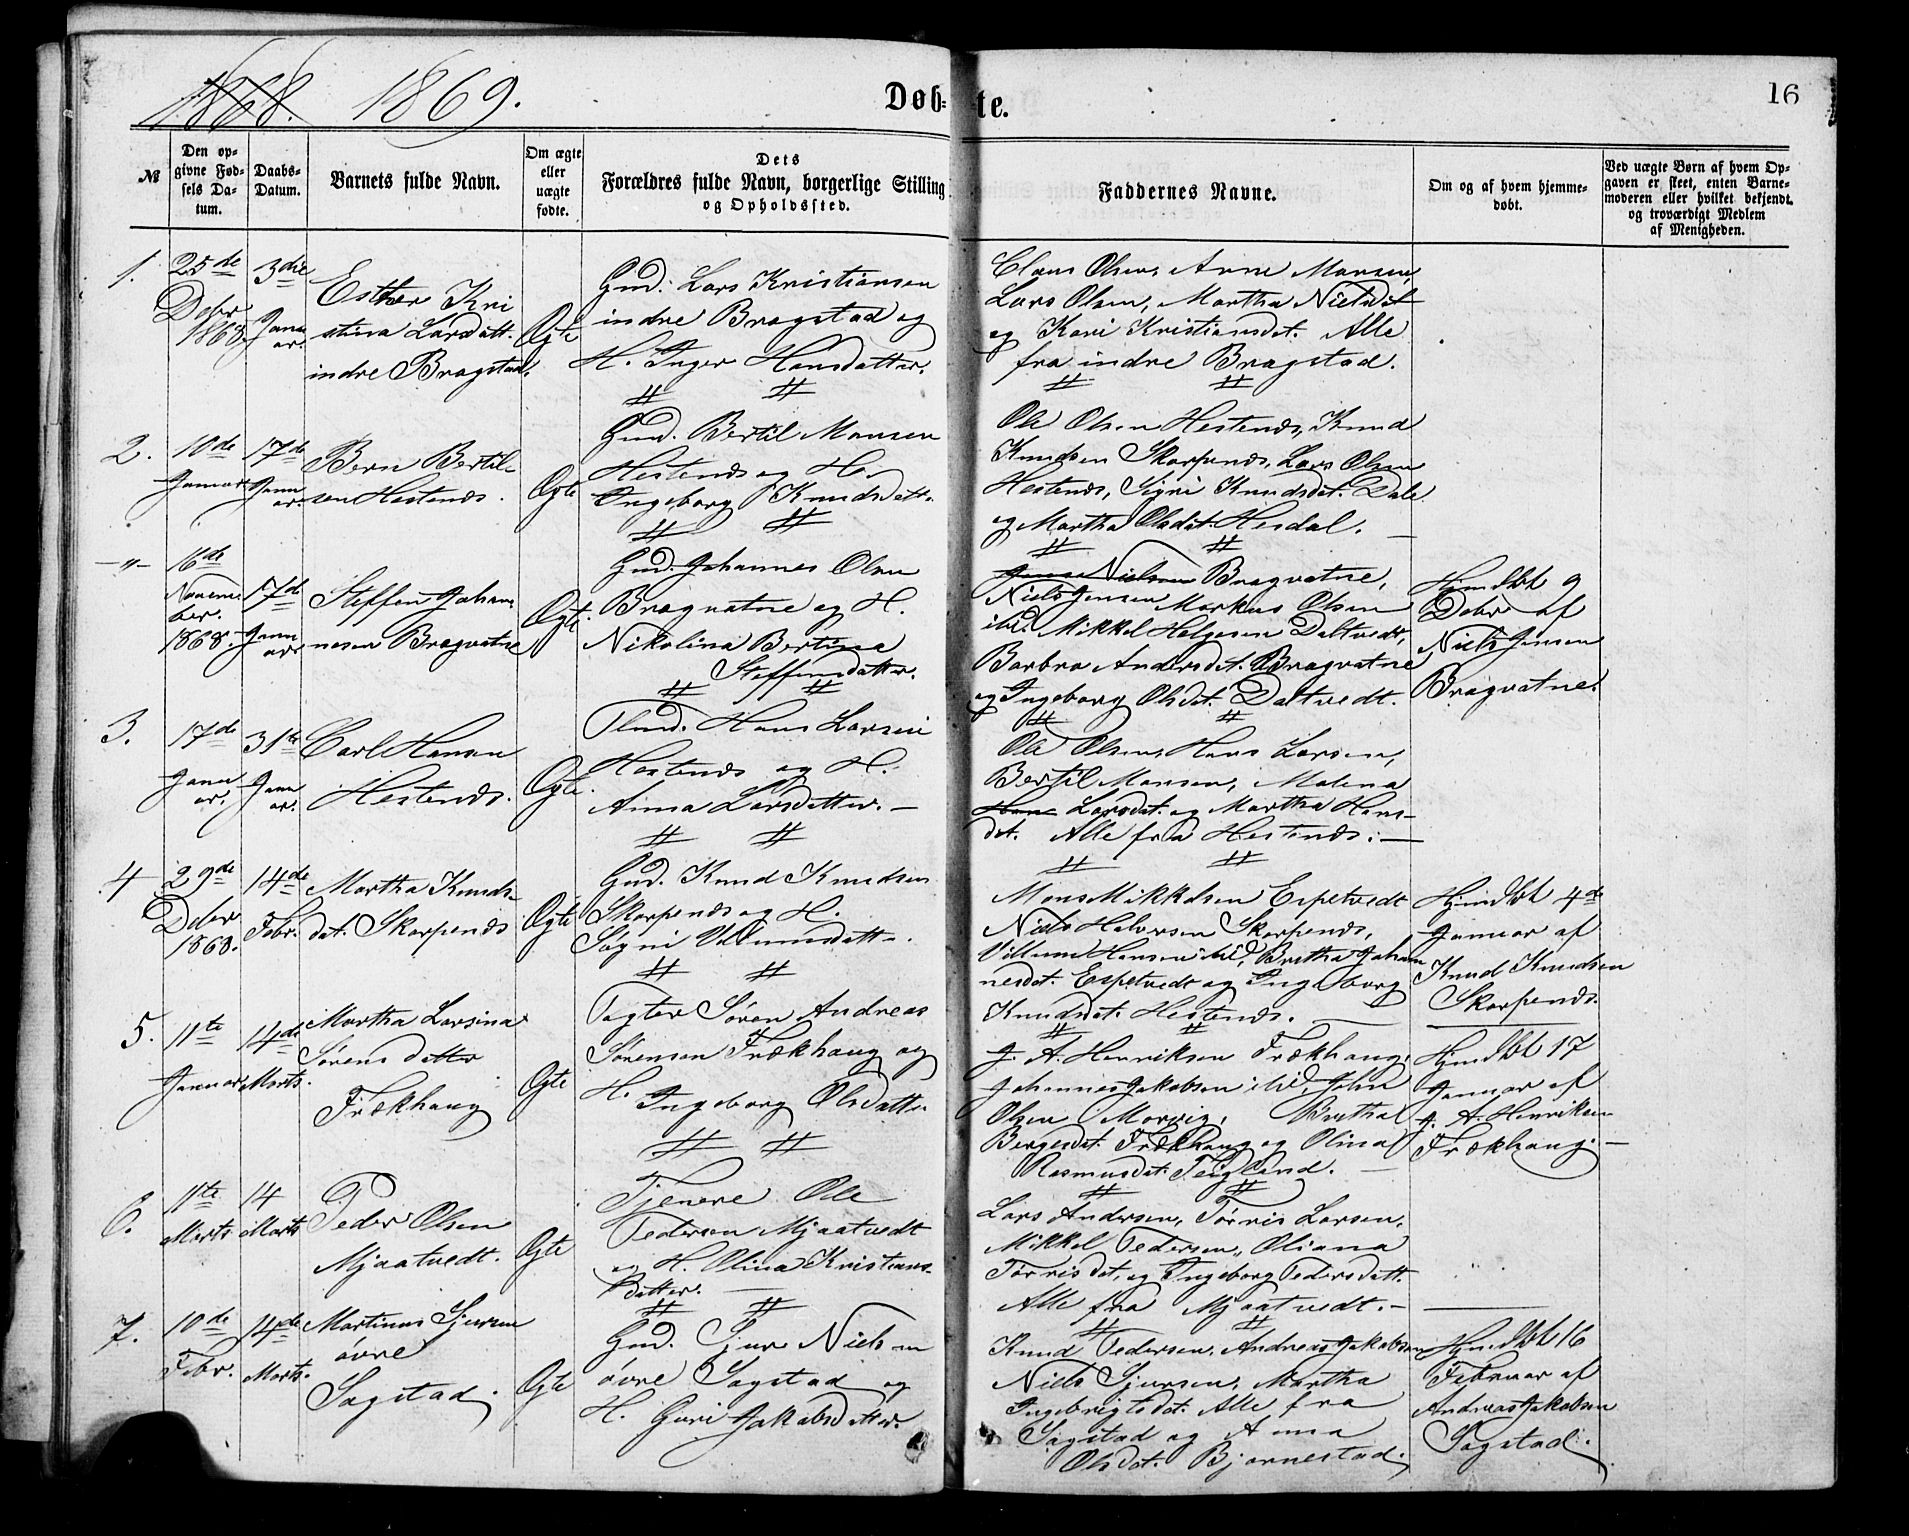 1868. 1869.
Døb-
te.
16
№
Den op-
givne Fød-
sels Da-
tum.
Daabs-
Datum.
Barnets fulde Navn.
Om ægte
eller
uægte
fødte.
Dets
Forældres fulde Navn, borgerlige Stilling
og Opholdssted.
Faddernes Navne.
Om og af hvem hjemme-
døbt.
Ved uægte Børn af hvem Op-
gaven er skeet, enten Barne-
moderen eller hvilket bekjendt
og troværdigt Medlem
af Menigheden.
1.
25de
Decbr
1868.
3die
Janu
ar.
Esther Kri
stina Larsdatt.
indre Bragstad.
Ægte
Gmd. Lars Kristiansen
indre Bragstad og
H. Inger Hansdatter.
Claus Olsen, Anne Monsen,
Lars Olsen, Martha Nielsdat
og Kari Kristiansdat. Alle
fra indre Bragstad.
2.
10de
Januar.
17de
Janu
ar.
Bern Bertil-
sen Hestenæs.
Ægte
Gmd. Bertil Monsen
Hestenæs og H.
Ingeborg Knudsdatt.
Ole Olsen Hestenæs, Knud
Knudsen Skarpenæs, Lars Olsen
Hestenæs, Signi Knudsdat. Dale
og Martha Olsdat. Hesdal.
-"-
16de
Novem
ber.
1868.
17de
Janu
ar
Steffen Johan
nesen Bragvatne
Ægte
Gmd. Johannes Olsen
Bragvatne og H.
Nikolina Bertina
Steffensdatter.
Jens Nielsen Bragvatne,
Niels Jensen Markus Olsen
ibd. Mikkel Helgesen Daltvedt,
Barbra Andersdat. Bragvatne
og Ingeborg Olsdat. Daltvedt.
Hjmdbt 9
Decbr af
Niels Jensen
Bragvatne.
3.
17de
Janu
ar.
31te
Janu
ar.
Carl Hansen
Hestenæs.
Ægte.
Plmd. Hans Larsen
Hestenæs og H.
Anna Larsdatter.
Ole Olsen, Hans Larsen,
Bertil Monsen, Malena
Hans Larsdat. og Martha Hans-
dat. Alle fra Hestenæs.
4
29de
Decbr
1868.
14de
Febr.
Martha Knuds-
dat. Skarpenæs
Ægte
Gmd. Knud Knudsen
Skarpenæs og H.
Signi Villumsdatt.
Mons Mikkelsen Espetvedt
Niels Halvorsen Skarpenæs,
Villum Hansen ibid, Bretha Johan
nesdat. Espetvedt og Ingeborg
Knudsdat. Hestenæs.
Hjmdbt 4de
Januar af
Knud Knudsen
Skarpenæs.
5.
11te
Januar
14de
Marts.
Martha Larsina
Sørensdatter
Frækhaug
Ægte
Søren Andreas
Sørensen Frækhaug og
H. Ingeborg Olsdatter
J. A. Henriksen Frækhaug,
Johannes Jakobsen ibid, John
Olsen Morvig, Bretha
Bergesdat. Frækhaug og Olina
Rasmusdat. Teigland.
Hjmdbt 17
Januar af
J. A. Henriksen
Frækhaug.
6.
11te
Marts
14
Marts
Peder Olsen
Mjaatvedt.
Ægte
Tjenere Ole
Pedersen Mjaatvedt
og H. Olina Kristians-
datter.
Lars Andersen, Tørris Larsen,
Mikkel Pedersen, Oliana
Tørrisdat, og Ingeborg Pedersdatt.
Alle fra Mjaatvedt.
7.
10de
Febr.
14de
Marts.
Martinus Sjursen
øvre
Sagstad.
Ægte
Gmd. Sjur Nielsen
øvre Sagstad og
H. Guri Jakobsdatter.
Knud Pedersen, Andreas Jakobsen
Niels Sjursen, Martha
Ingebrigtsdat. Alle fra
Sagstad og Anna
Olsdat. Bjørnestad.
Hjmdbt 16
Februar af
Andreas Jakobsen
Sagstad.